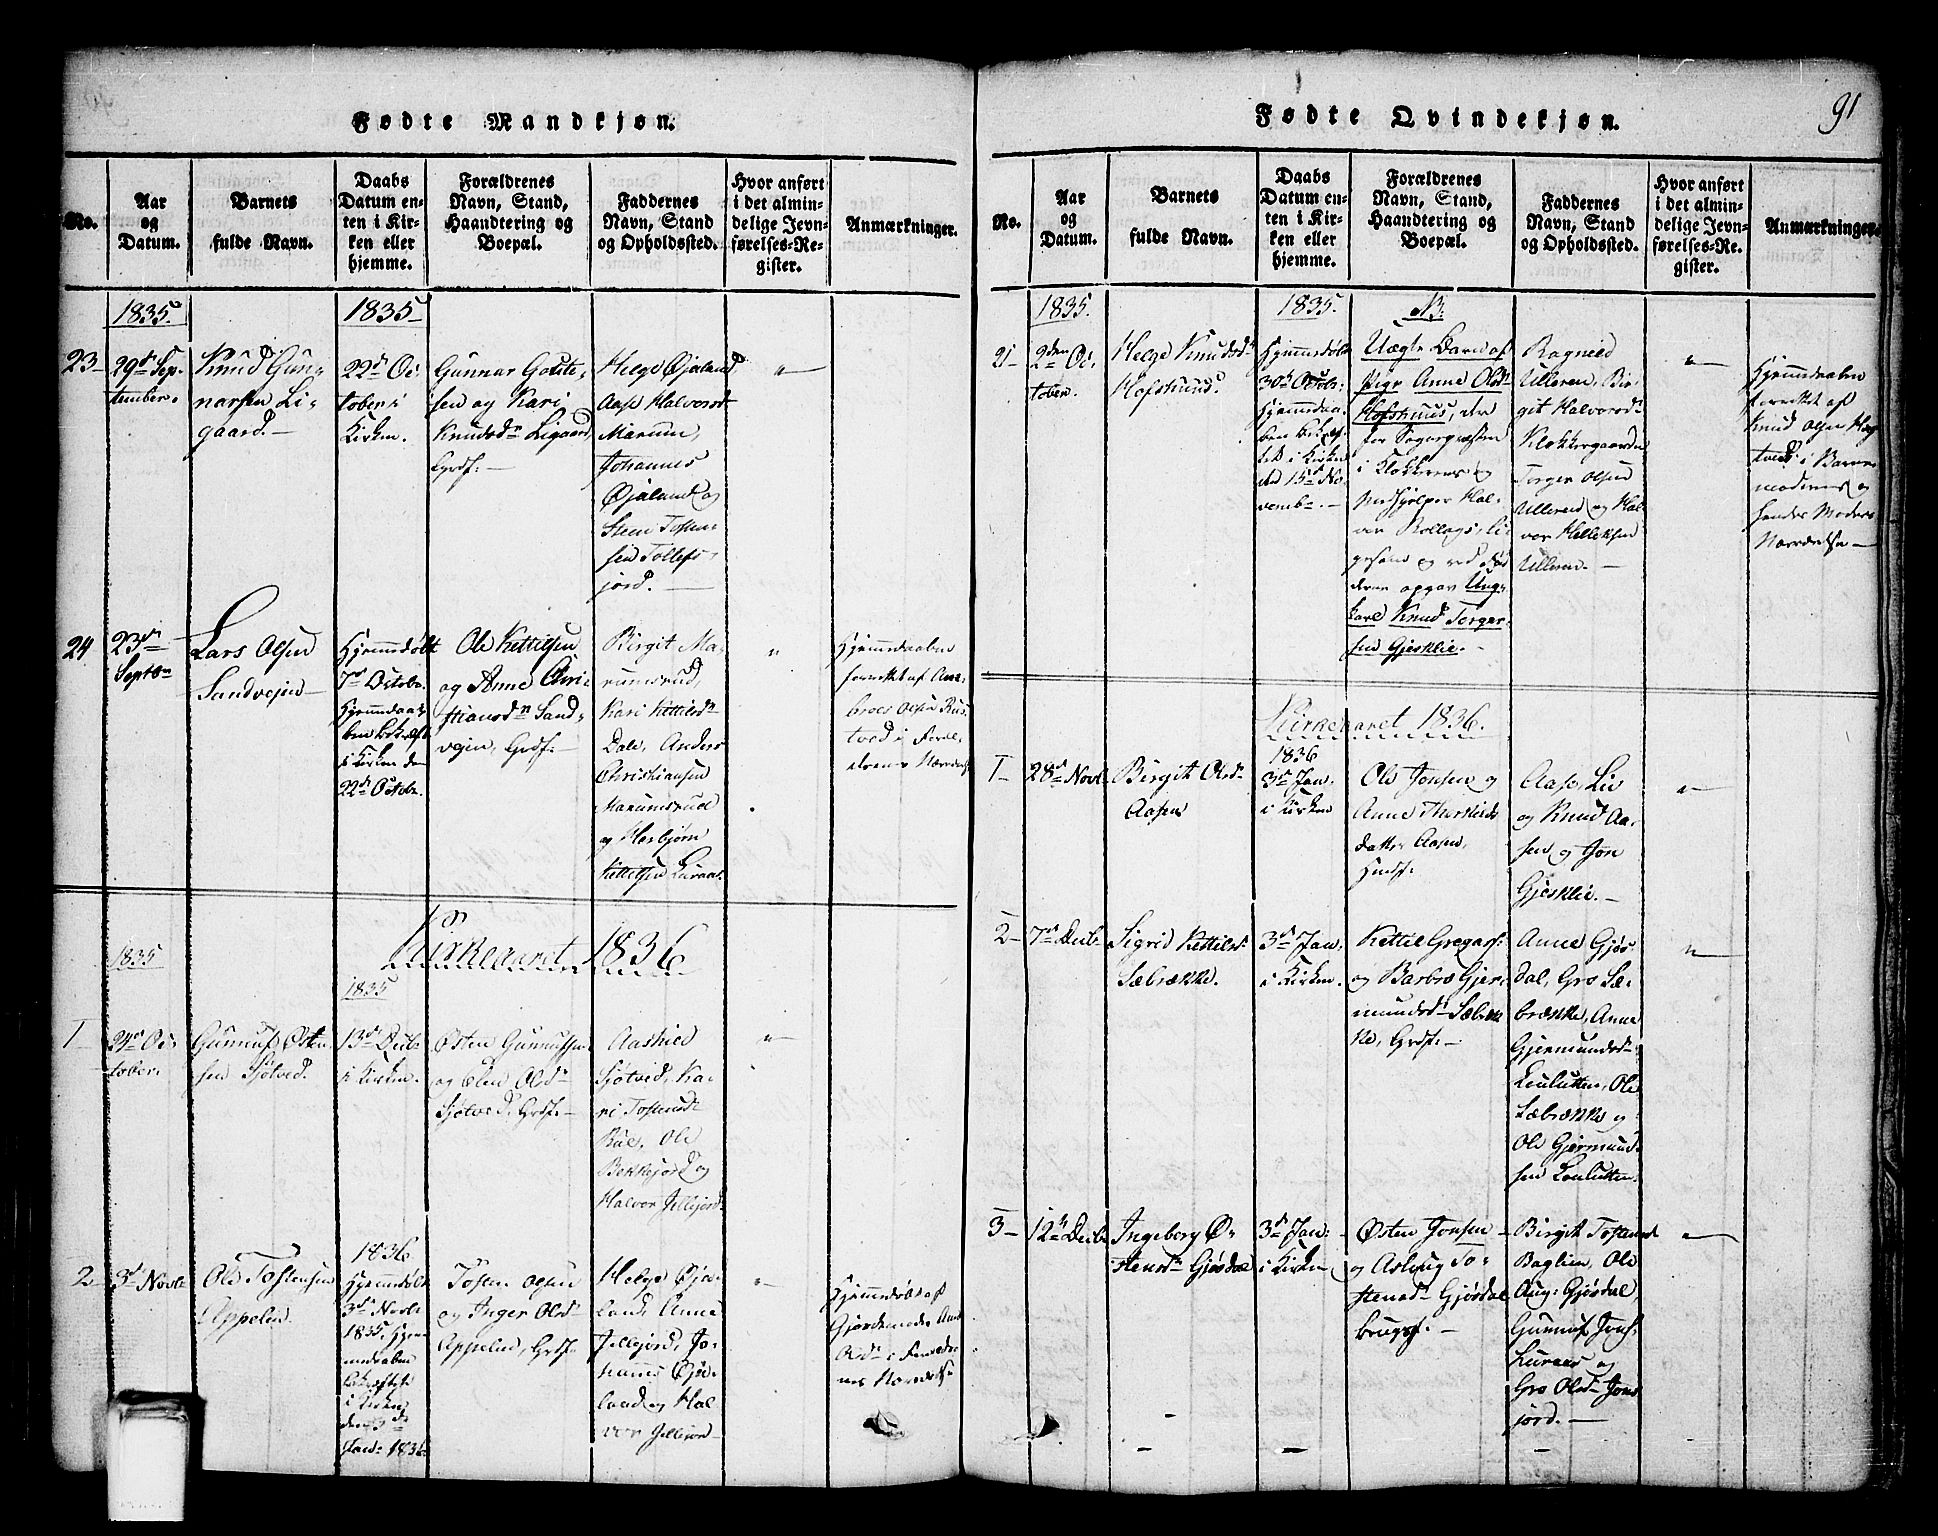 91
Fødte Mandkjøn.
No.
Aar
og
Datum.
Barnets
fulde Navn.
Daabs
Datum en-
ten i Kir-
ken eller
hjemme.
Forældrenes
Navn, Stand,
Haandtering og
Boepæl.
Faddernes
Navn, Stand
og Opholdssted.
Hvor anført
i det almin-
delige Jevn-
førelses-Re-
gister.
Anmærkninger.
1835.
1835
23
29de Sep-
tember.
Knud Gun-
narsen Li-
gaard.
22de Oc-
tober i
Kirken.
Gunnar Goute-
sen og Kari
Knudsdr Ligaard
Grdf.
Helge Øjaland
Aase Halvorsd
Marum,
Johannes
Øjaland og
Steen Tosten-
sen Tollefs-
jord.
24
23de
Septbr
Lars Olsen
Sandvejen
Hjemmedøbt
7de Octobr.
Hjemmedaa-
ben bekræft
i Kirken den
22de Octobr.
Ole Kettilsen
og Anne Chri-
stiansdr Sand-
vejen, Grdf.
Birgit Ma-
rumsrud,
Kari Kettilsdr
Dale, Anders
Christiansen
Marumsrud
og Herbjørn
Kettilsen Luraas.
Hjemmedaaben
forrettet af Am-
bros Olsen Rus-
tved i Foræl-
drenes Nærværelse
Kirkeaaret 1836
1835
1835
1
24de Oc-
tober.
Gunnuf Østen-
sen Sjøtved.
13de Decbr
i Kirken.
Østen Gunnufsen
og Elen Olsdr
Sjøtved, Grdf.
Aashild
Sjøtved, Ka-
ri Tostensdr
Bue, Ole
Bekkejord og
Halvor Jellejord
2
3de Novbr
Ole Tostensen
Appelen.
1836
Hjemmedøbt
3de Novbr
1835. Hjem-
medaaben
bekræftet
i Kirken
den 3de
Jan: 1836
Tosten Olsen
og Inger Olsdr
Appelen, Grdf.
Helge Øja-
land, Anne
Jellejord, Jo-
hannes Øja-
land og Hal-
vor Jellejord
Hjemmedøbt af
Gjordemoder Anne
Olsdr i Forældre-
nes Nærværelse
Fødte Qvindekjøn.
No.
Aar
og
Datum.
Barnets
fulde Navn.
Daabs
Datum en-
ten i Kir-
ken eller
hjemme.
Forældrenes
Navn, Stand,
Haandtering og
Boepæl.
Faddernes
Navn, Stand
og Opholdssted.
Hvor anført
i det almin-
delige Jevn-
førelses-Re-
gister.
Anmærkninger.
1835.
1835.
NB:
21
2den Oc-
tober.
Helge Knudsdr
Hofshuus.
Hjemmedøbt
30te Octobr.
Hjemmedaa-
ben bekræf-
tet i Kirken
den 15de No-
vembr.
Uægte Barn af
Pige Anne Olsdr
Hofshuus, den
for Sognepræsten
i Klokkerens og
Medhjelper Hal-
vor Bollags
og ved
opgav Ung-
karl Knud Torger-
sen Gjesklie.
Ragnild
Ulleren, Bir-
git Halvorsdr
Klokkergaarden
Torger Olsen
Ulleren og Hal-
vor Helleksen
Ulleren.
Hjemmedaaben
forrettet af
Knud Olsen
i Barne-
moderens og
hendes Moders
Nærværelse
Kirkeaaret 1836.
1836
1
28de Novbr
Birgit Olsdr
Aasen
3de Jan:
i Kirken
Ole Jonsen og
Anne Thorkilds-
datter Aasen,
Huusf.
Aase, Liv
og Knud Aa-
sen og Jon
Gjesklie.
2
7de Decbr
Sigrid Kettilsdr
Sæbrække.
3de Jan:
i Kirken.
Kettil Gregars:
og Barbro Gjer-
mundsdr Sæbræk-
ke, Grdf.
Anne Gjøs-
dal, Gro Sæ-
brække, Anne
Gjermundsdr
Lonlutten, Ole
Sæbrække og
Ole Gjermund-
sen Lonlutten.
3
12te Decbr
Ingeborg Ø-
stensdr Gjøsdal
3de Jan:
i Kirken
Østen Jonsen
og Aslaug To-
stensdr Gjøsdal
brugsf.
Birgit Tostensdr
Baglien, Ole
Aug: Gjøsdal,
Gunnuf Jons:
Luraas og
Gro Olsdr Jons-
jord.